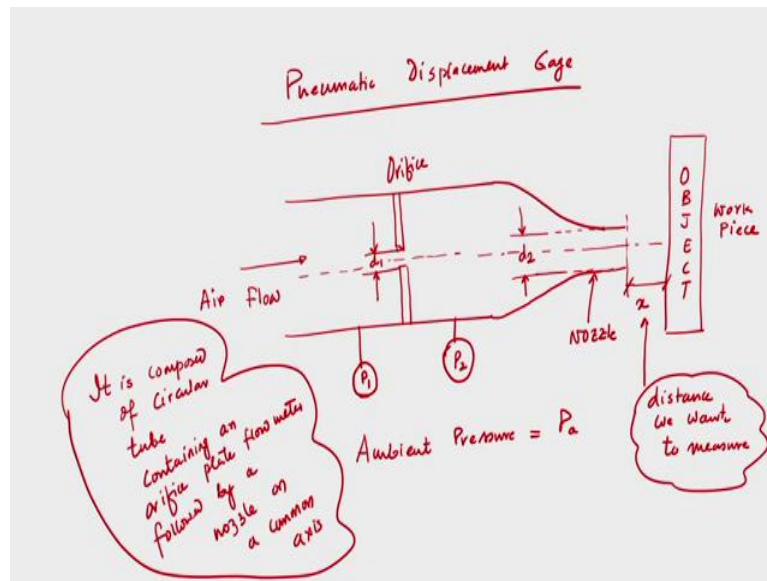 Pneumatic Displacement Gage
Orifice
OBJECT
Work
Piece
d1
d2
Air Flow
x
Nozzle
P1
P2
It is composed
of circular
tube
containing an
orifice plate flow meter
followed by a
nozzle on
a common
axis
Ambient Pressure = Pa
distance
we want
to measure